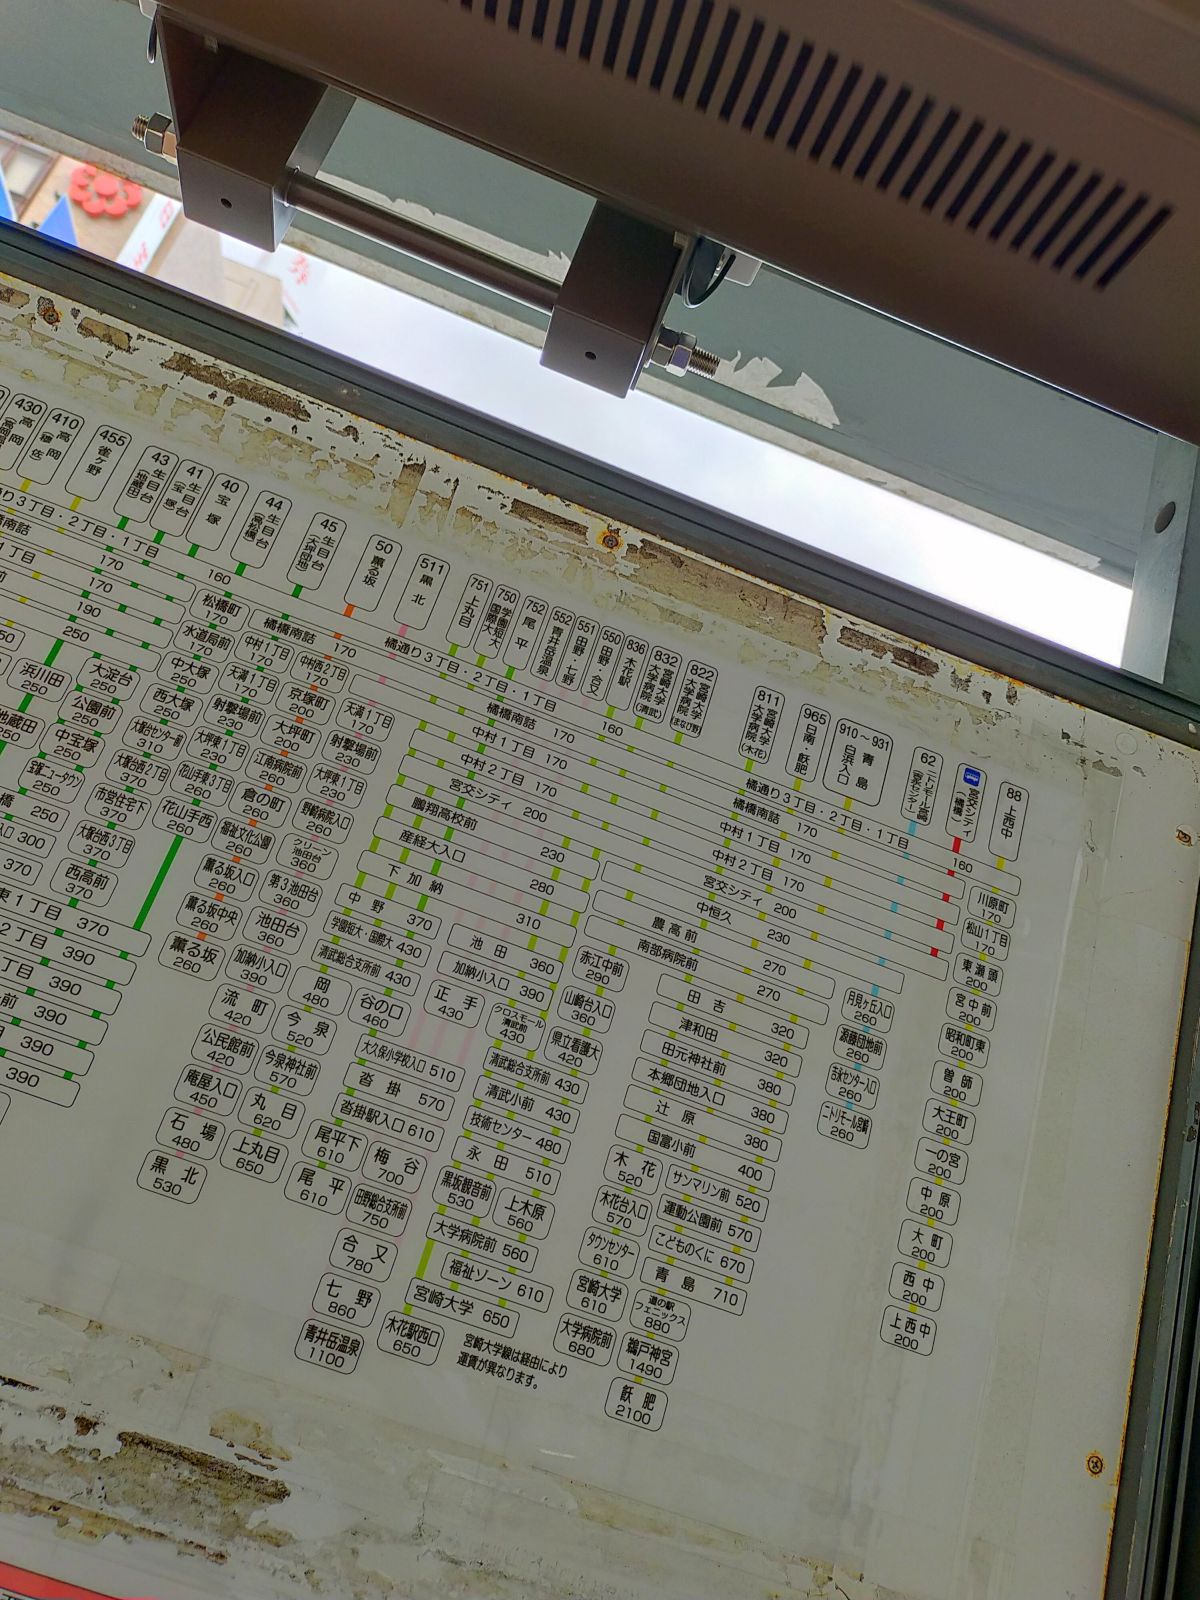 430 高岡
410 高岡
455 雀ケ野
43 生目台 (地蔵田)
41 生目台 (宝塚)
40 宝塚
44 生目台 (高松橋)
45 生目台 (大坪団地)
50 薫る坂
511 黒北
751 上丸目
750 学園短大 国際大
752 尾平
552 青井岳温泉
551 田野・七野
550 田野・合又
836 木花駅
832 宮崎大学 大学病院 (清武)
822 宮崎大学 大学病院 まなび野
811 宮崎大学 大学病院 (木花)
965 日南・飫肥
910～931 青島 白浜入口
62
宮交シティ (橘橋)
88 上西中
り3丁目・2丁目・1丁目 160
橘南詰 170
1丁目 170
190
250
松橋町 170
水道局前 170
橘橋南詰 170
橘通り3丁目・2丁目・1丁目 160
橘橋南詰 170
中村1丁目 170
中村2丁目 170
宮交シティ 200
鵬翔高校前 230
産経大入口 280
下加納 310
橘通り3丁目・2丁目・1丁目 160
橘橋南詰 170
中村1丁目 170
中村2丁目 170
宮交シティ 200
中恒久 230
農高前 270
南部病院前 270
浜川田 250
地蔵田 250
宝塚ニュータウン 250
橋 250
入口 300
370
大淀台 250
公園前 250
中宝塚 250
大塚台西2丁目 370
市営住宅下 370
大塚台西3丁目 370
西高前 370
中大塚 250
西大塚 250
大塚台センター前 310
東1丁目 370
2丁目 390
丁目 390
前 390
390
390
中村1丁目 170
天満1丁目 170
射撃場前 230
大坪東1丁目 230
花山手東3丁目 260
花山手西 260
中村西2丁目 170
京塚町 200
大坪町 200
江南病院前 260
倉の町 260
福祉文化公園 260
薫る坂入口 260
薫る坂中央 260
薫る坂 260
天満1丁目 170
射撃場前 230
大坪東1丁目 230
野崎病院入口 260
グリーン池田台 360
第3池田台 360
池田台 360
加納小入口 390
流町 420
公民館前 420
庵屋入口 450
石場 480
黒北 530
中野 370
学園短大・国際大 430
清武総合支所前 430
岡 480
今泉 520
今泉神社前 570
丸目 620
上丸目 650
谷の口 460
大久保小学校入口 510
沓掛 570
沓掛駅入口 610
尾平下 610
尾平 610
梅谷 700
田野総合支所前 750
合又 780
七野 860
青井岳温泉 1100
池田 360
加納小入口 390
正手 430
クロスモール清武前 430
清武総合支所前 430
清武小前 430
技術センター 480
永田 510
黒坂観音前 530
上木原 560
大学病院前 560
福祉ゾーン 610
宮崎大学 650
木花駅西口 650
宮崎大学線は経由により
運賃が異なります。
赤江中前 290
山崎台入口 360
県立看護大 420
田吉 320
津和田 320
田元神社前 380
本郷団地入口 380
辻原 380
国富小前 400
木花 520
木花台入口 570
タウンセンター 610
宮崎大学 610
大学病院前 680
サンマリン前 520
運動公園前 570
こどものくに 670
青島 710
道の駅フェニックス 880
鵜戸神宮 1490
飫肥 2100
月見ケ丘入口 260
源藤団地前 260
ニトリモール宮崎 260
川原町 170
松山1丁目 170
東瀬頭 200
宮中前 200
昭和町東 200
曽師 200
大王町 200
一の宮 200
中原 200
大町 200
西中 200
上西中 200